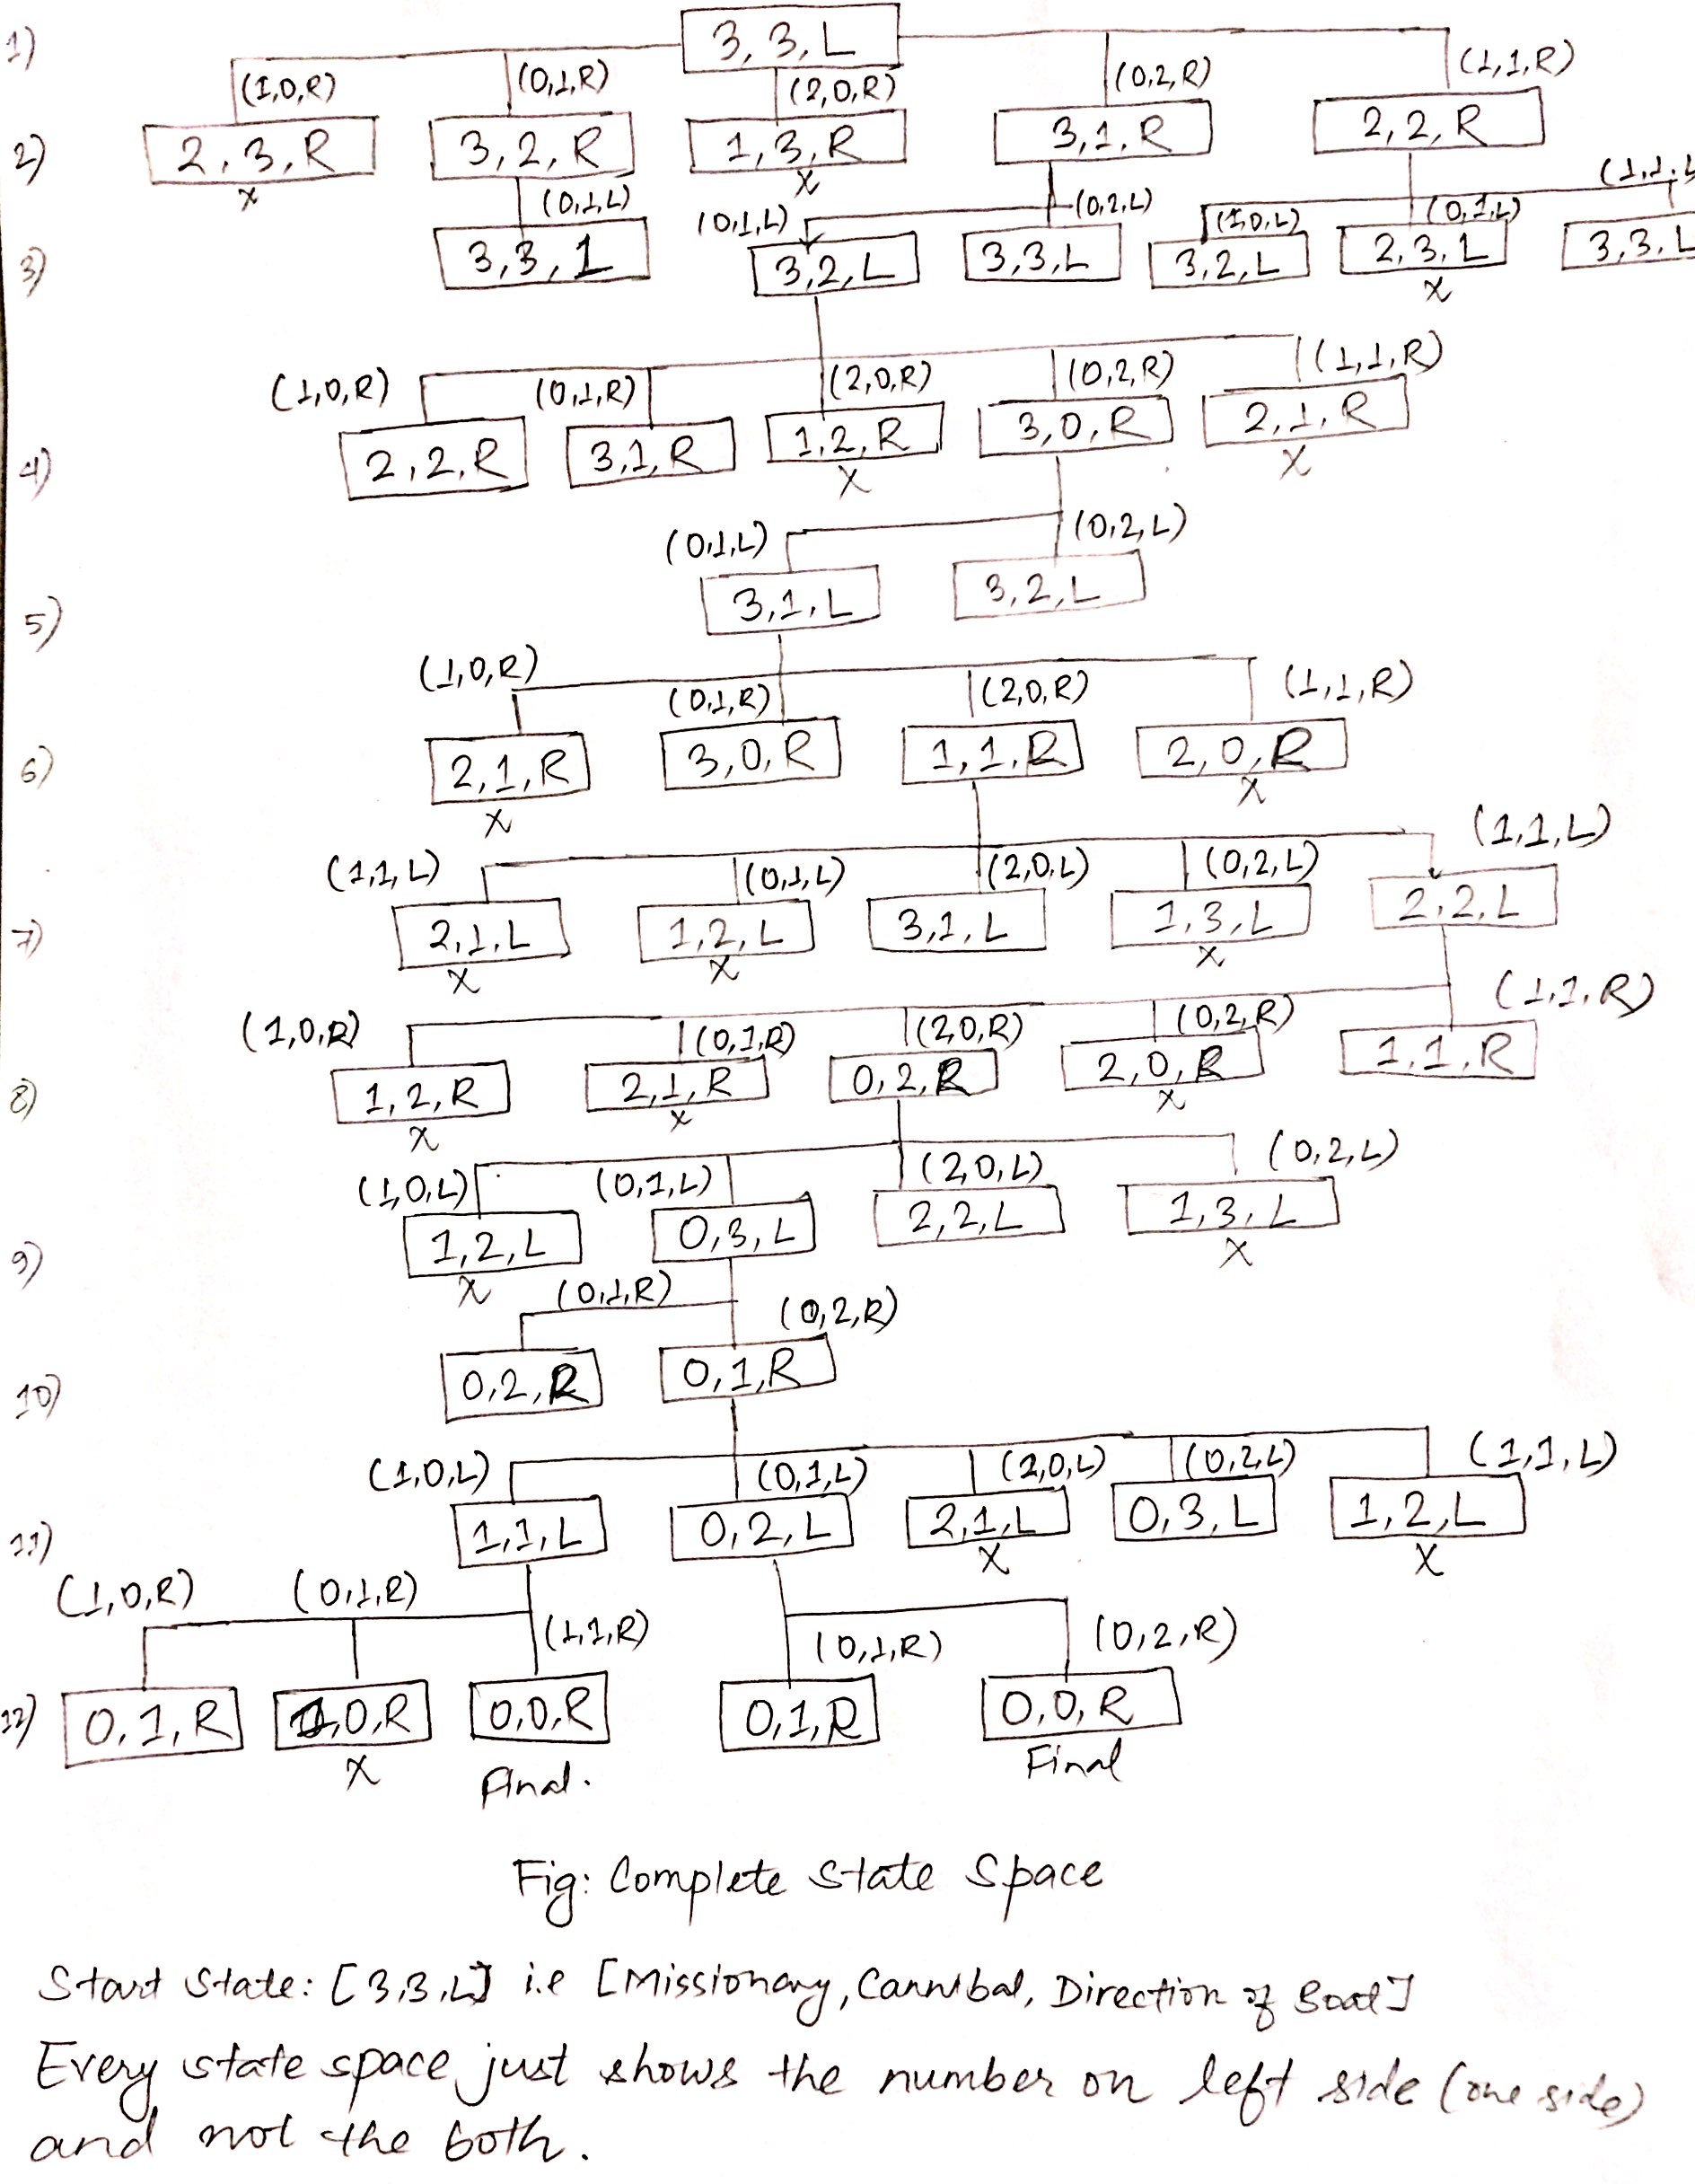 1) 3,3,L
(1,0,R) (0,1,R) (2,0,R) (0,2,R) (1,1,R)
2) 2,3,R 3,2,R 1,3,R 3,1,R 2,2,R
x x
(0,1,L) (0,1,L) (0,2,L) (1,0,L) (0,1,L) (1,1,L
3) 3,3,1 3,2,L 3,3,L 3,2,L 2,3,L 3,3,L
x
(1,0,R) (0,1,R) (2,0,R) (0,2,R) (1,1,R)
4) 2,2,R 3,1,R 1,2,R 3,0,R 2,1,R
x x
(0,1,L) (0,2,L)
5) 3,1,L 3,2,L
(1,0,R) (0,1,R) (2,0,R) (1,1,R)
6) 2,1,R 3,0,R 1,1,R 2,0,R
x x
(1,1,L) (0,1,L) (2,0,L) (0,2,L) (1,1,L)
7) 2,1,L 1,2,L 3,1,L 1,3,L 2,2,L
x x x
(1,0,R) (0,1,R) (2,0,R) (0,2,R) (1,1,R)
8) 1,2,R 2,1,R 0,2,R 2,0,R 1,1,R
x x x
(1,0,L) (0,1,L) (2,0,L) (0,2,L)
9) 1,2,L 0,3,L 2,2,L 1,3,L
x x
(0,1,R) (0,2,R)
10) 0,2,R 0,1,R
(1,0,L) (0,1,L) (2,0,L) (0,2,L) (1,1,L)
11) 1,1,L 0,2,L 2,1,L 0,3,L 1,2,L
x x
(1,0,R) (0,1,R) (1,1,R) (0,1,R) (0,2,R)
12) 0,1,R 1,0,R 0,0,R 0,1,R 0,0,R
x Final. Final
Fig: Complete State Space
Start State: [3,3,L] i.e [Missionary, Cannibal, Direction of Boat]
Every state space just shows the number on left side (one side)
and not the both.